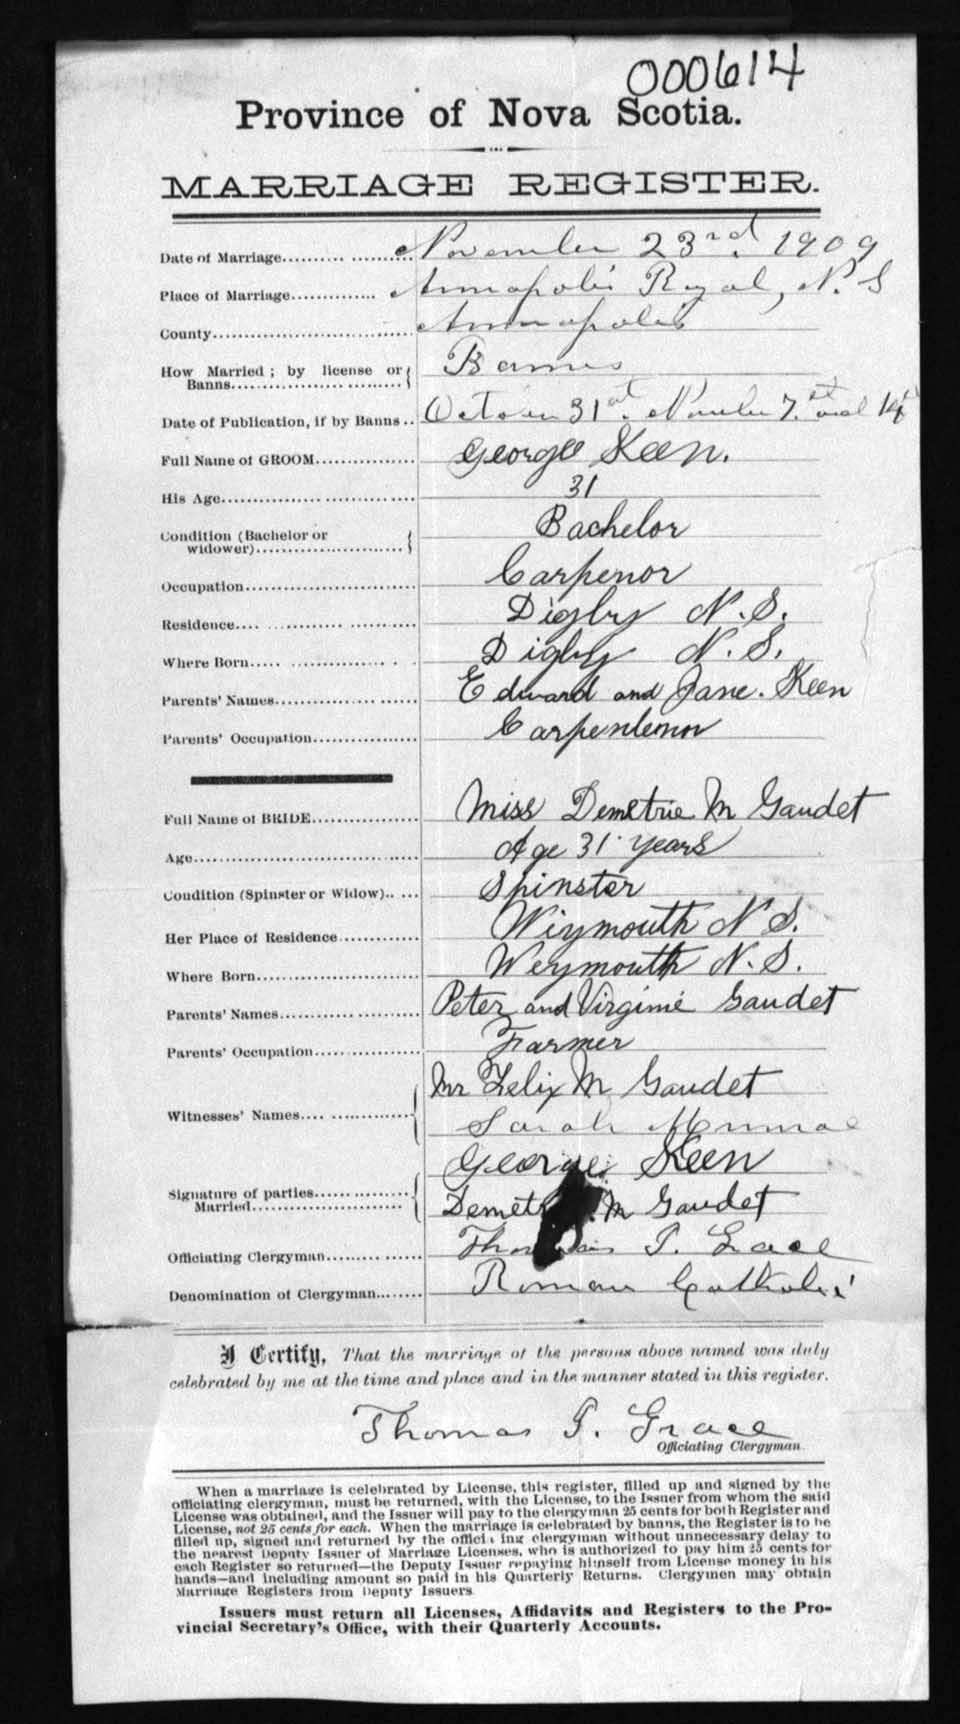 000614
Province of Nova Scotia.
MARRIAGE REGISTER.
Date of Marriage.......... ........... November 23rd. 1909
Place of Marriage.............. Annapolis Royal, N. S
County................................. Annapolis
How Married ; by license or { Banns
Banns.................................
Date of Publication, if by Banns .. October 31st. November 7. and 14th
Full Name of GROOM................ George Keen.
His Age................................. 31
Condition (Bachelor or { Bachelor
widower)............................
Occupation............................. Carpenor
Residence.... ........... ........... Digby N.S.
Where Born..... ................ . . Digby N.S.
Parents' Names....................... Edward and Jane. Keen
Parents' Occupation.................. Carpentenor
Full Name of BRIDE.................. Miss Demetrie M Gaudet
Age....................................... Age 31 years
Condition (Spinster or Widow).. ... Spinster
Her Place of Residence............. Wiymouth N S.
Where Born........................... Weymouth N.S.
Parents' Names....................... Peter and Virginie Gaudet
Parents' Occupation.................. Farmer
Mr Felix M Gaudet
Witnesses' Names.... ................ {
Sarah Munroe
George Keen
Signature of parties................. {
Married..........................
Demet M Gaudet
Officiating Clergyman............... Thomas P. Grace
Denomination of Clergyman........ Roman Catholic
I Certify, That the marriage of the persons above named was duly
celebrated by me at the time and place and in the manner stated in this register.
Thomas P. Grace
Officiating Clergyman.
When a marriage is celebrated by License, this register, filled up and signed by the
officiating clergyman, must be returned, with the License, to the Issuer from whom the said
License was obtained, and the Issuer will pay to the clergyman 25 cents for both Register and
License, not 25 cents for each. When the marriage is celebrated by banns, the Register is to be
filled up, signed and returned by the officiating clergyman without unnecessary delay to
the nearest Deputy Issuer of Marriage Licenses, who is authorized to pay him 25 cents for
each Register so returned—the Deputy Issuer repaying himself from License money in his
hands—and including amount so paid in his Quarterly Returns. Clergymen may obtain
Marriage Registers from Deputy Issuers
Issuers must return all Licenses, Affidavits and Registers to the Pro-
vincial Secretary's Office, with their Quarterly Accounts.